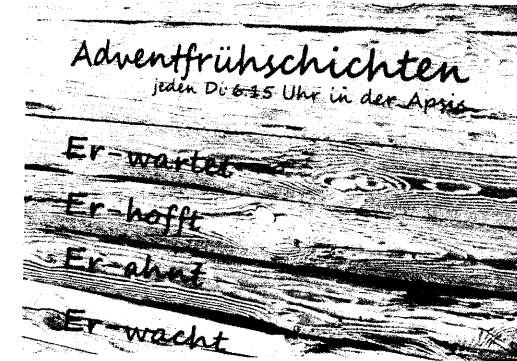 Adventfrühschichten
jeden Di 6.15 Uhr in der Apsis
Er-wartet
Er-hofft
Er-ahnt
Er-wacht